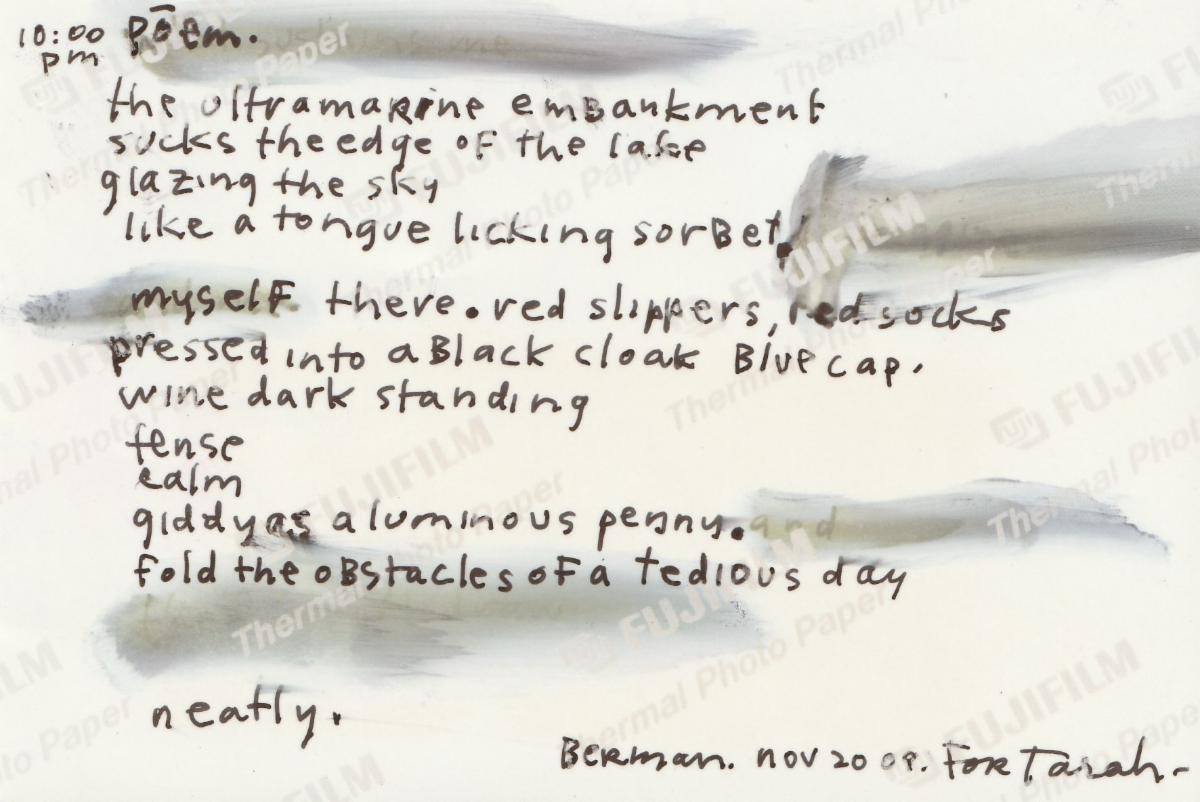 10:00 pm
Pōem.
the ultramarine embankment
sucks the edge of the lake
glazing the sky
like a tongue licking sorbet.
myself there. red slippers, red socks
pressed into a black cloak blue cap.
wine dark standing
tense
calm
giddy as a luminous penny. and
fold the obstacles of a tedious day
neatly.
Berman. nov 20 09. For Tarah-
FUJIFILM
Thermal Photo Paper